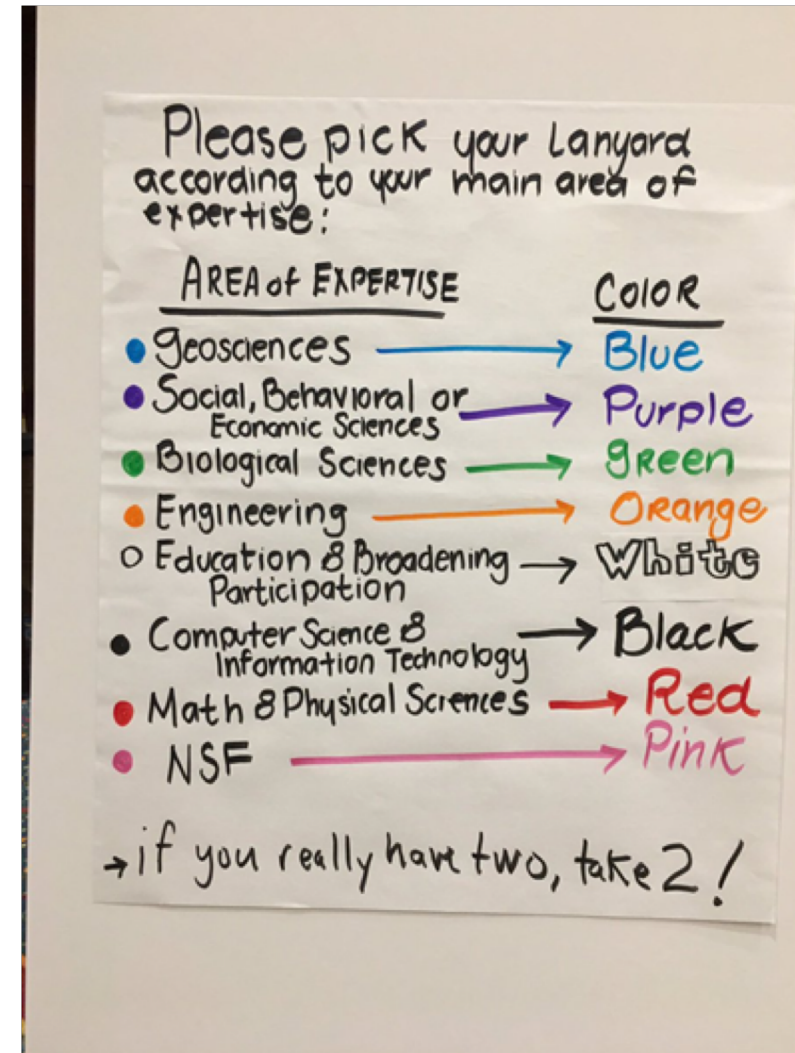 Please pick your Lanyard
according to your main area of
expertise:
AREA of EXPERTISE COLOR
• geosciences → Blue
• Social, Behavioral or
Economic Sciences → Purple
• Biological Sciences → green
• Engineering → Orange
○ Education & Broadening
Participation → White
• Computer Science &
Information Technology → Black
• Math & Physical Sciences → Red
• NSF → Pink
→ if you really have two, take 2!